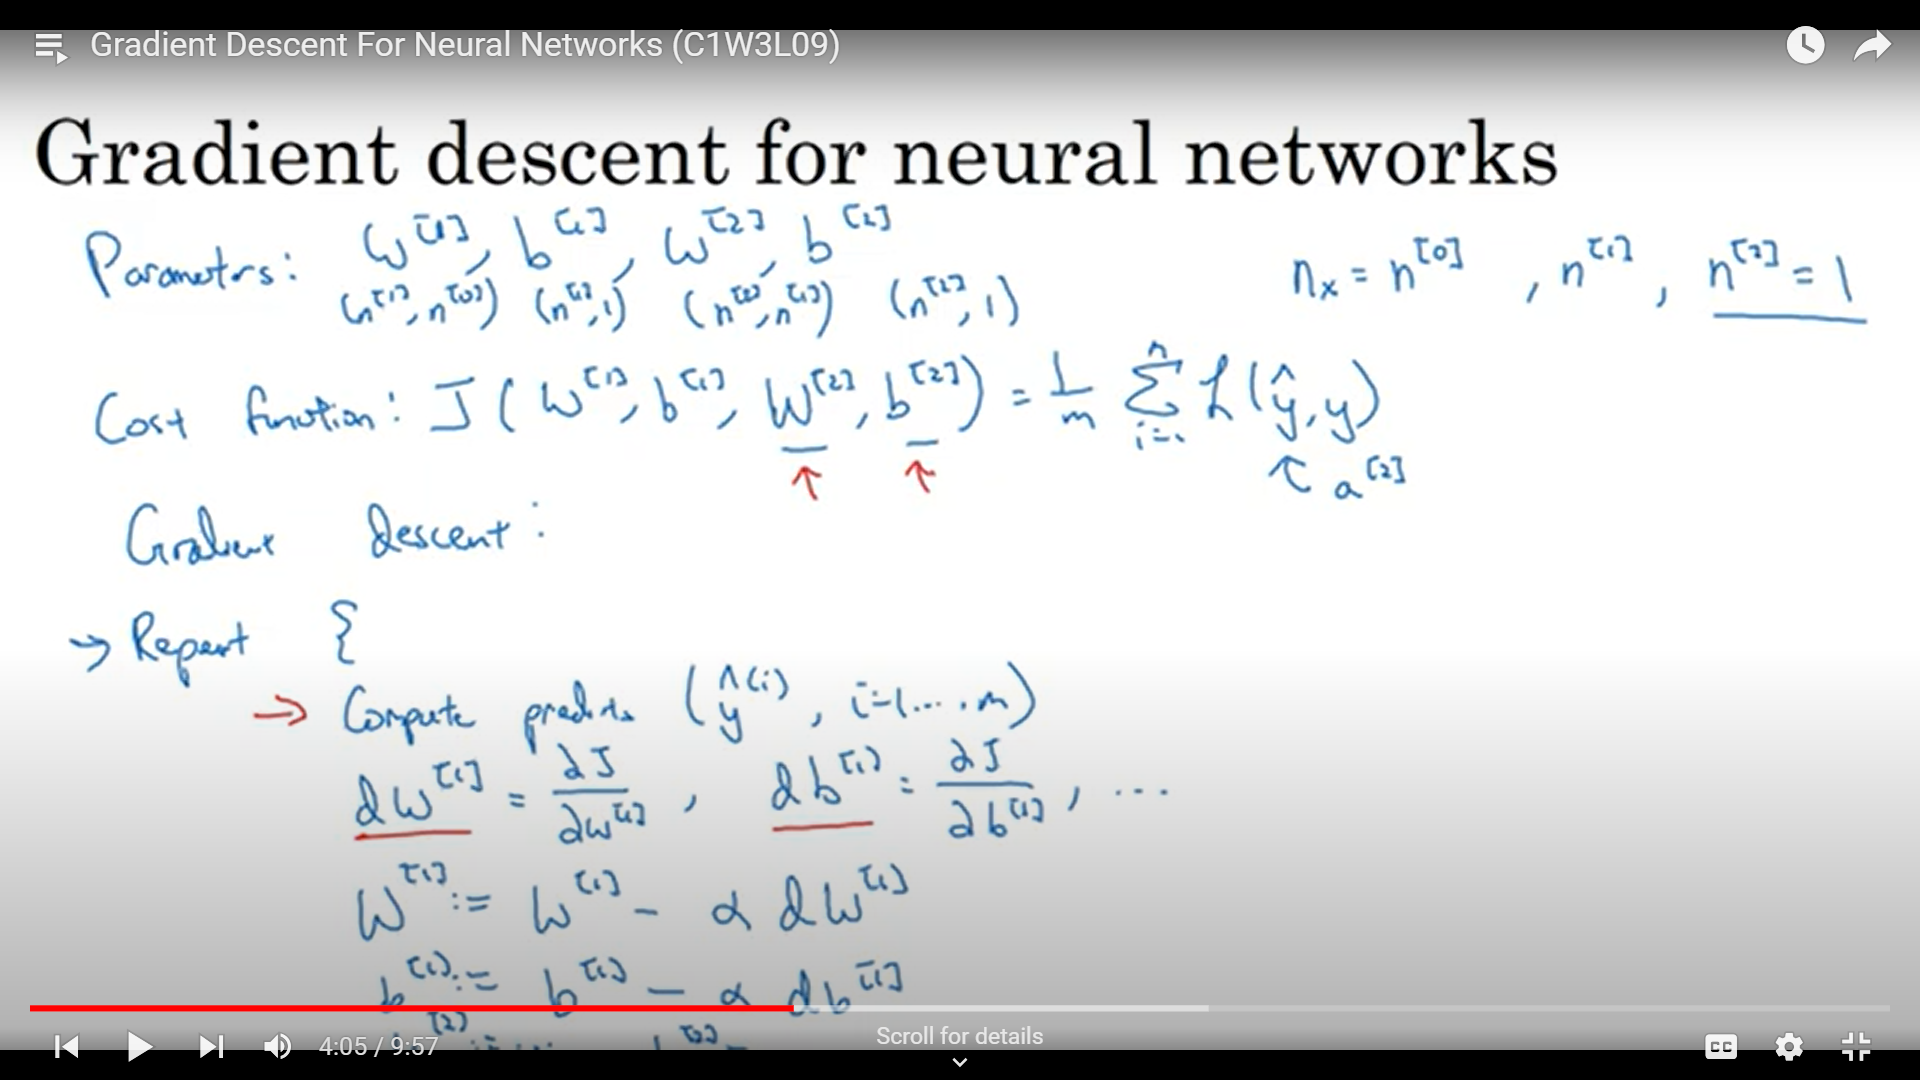 Gradient Descent For Neural Networks (C1W3L09)
Gradient descent for neural networks
Parameters: W^[1], b^[1], W^[2], b^[2]
(n^[1], n^[0]) (n^[1], 1) (n^[2], n^[1]) (n^[2], 1)
n_x = n^[0], n^[1], n^[2] = 1
Cost function: J(W^[1], b^[1], W^[2], b^[2]) = 1/m Σ_{i=1}^{n} L(ŷ, y)
↑ ↑ ↖ a^[2]
Gradient descent:
→ Repeat {
→ Compute predicts (ŷ^(i), i=1....m)
dW^[1] = ∂J/∂W^[1], db^[1] = ∂J/∂b^[1], ...
W^[1] := W^[1] - α dW^[1]
b^[1] := b^[1] - α db^[1]
4:05 / 9:57
Scroll for details
CC